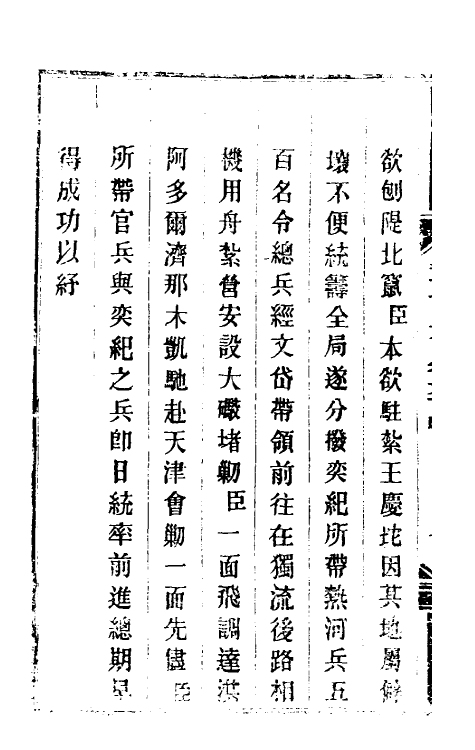 欲刨隄北竄臣本欲駐紮王慶坨因其地屬僻
壤不便統籌全局遂分撥奕紀所帶熱河兵五
百名令總兵經文岱帶領前往在獨流後路相
機用舟紮營安設大礮堵勦臣一面飛調達洪
阿多爾濟那木凱馳赴天津會勦一面先儘臣
所帶官兵與奕紀之兵卽日統率前進總期早
得成功以紓